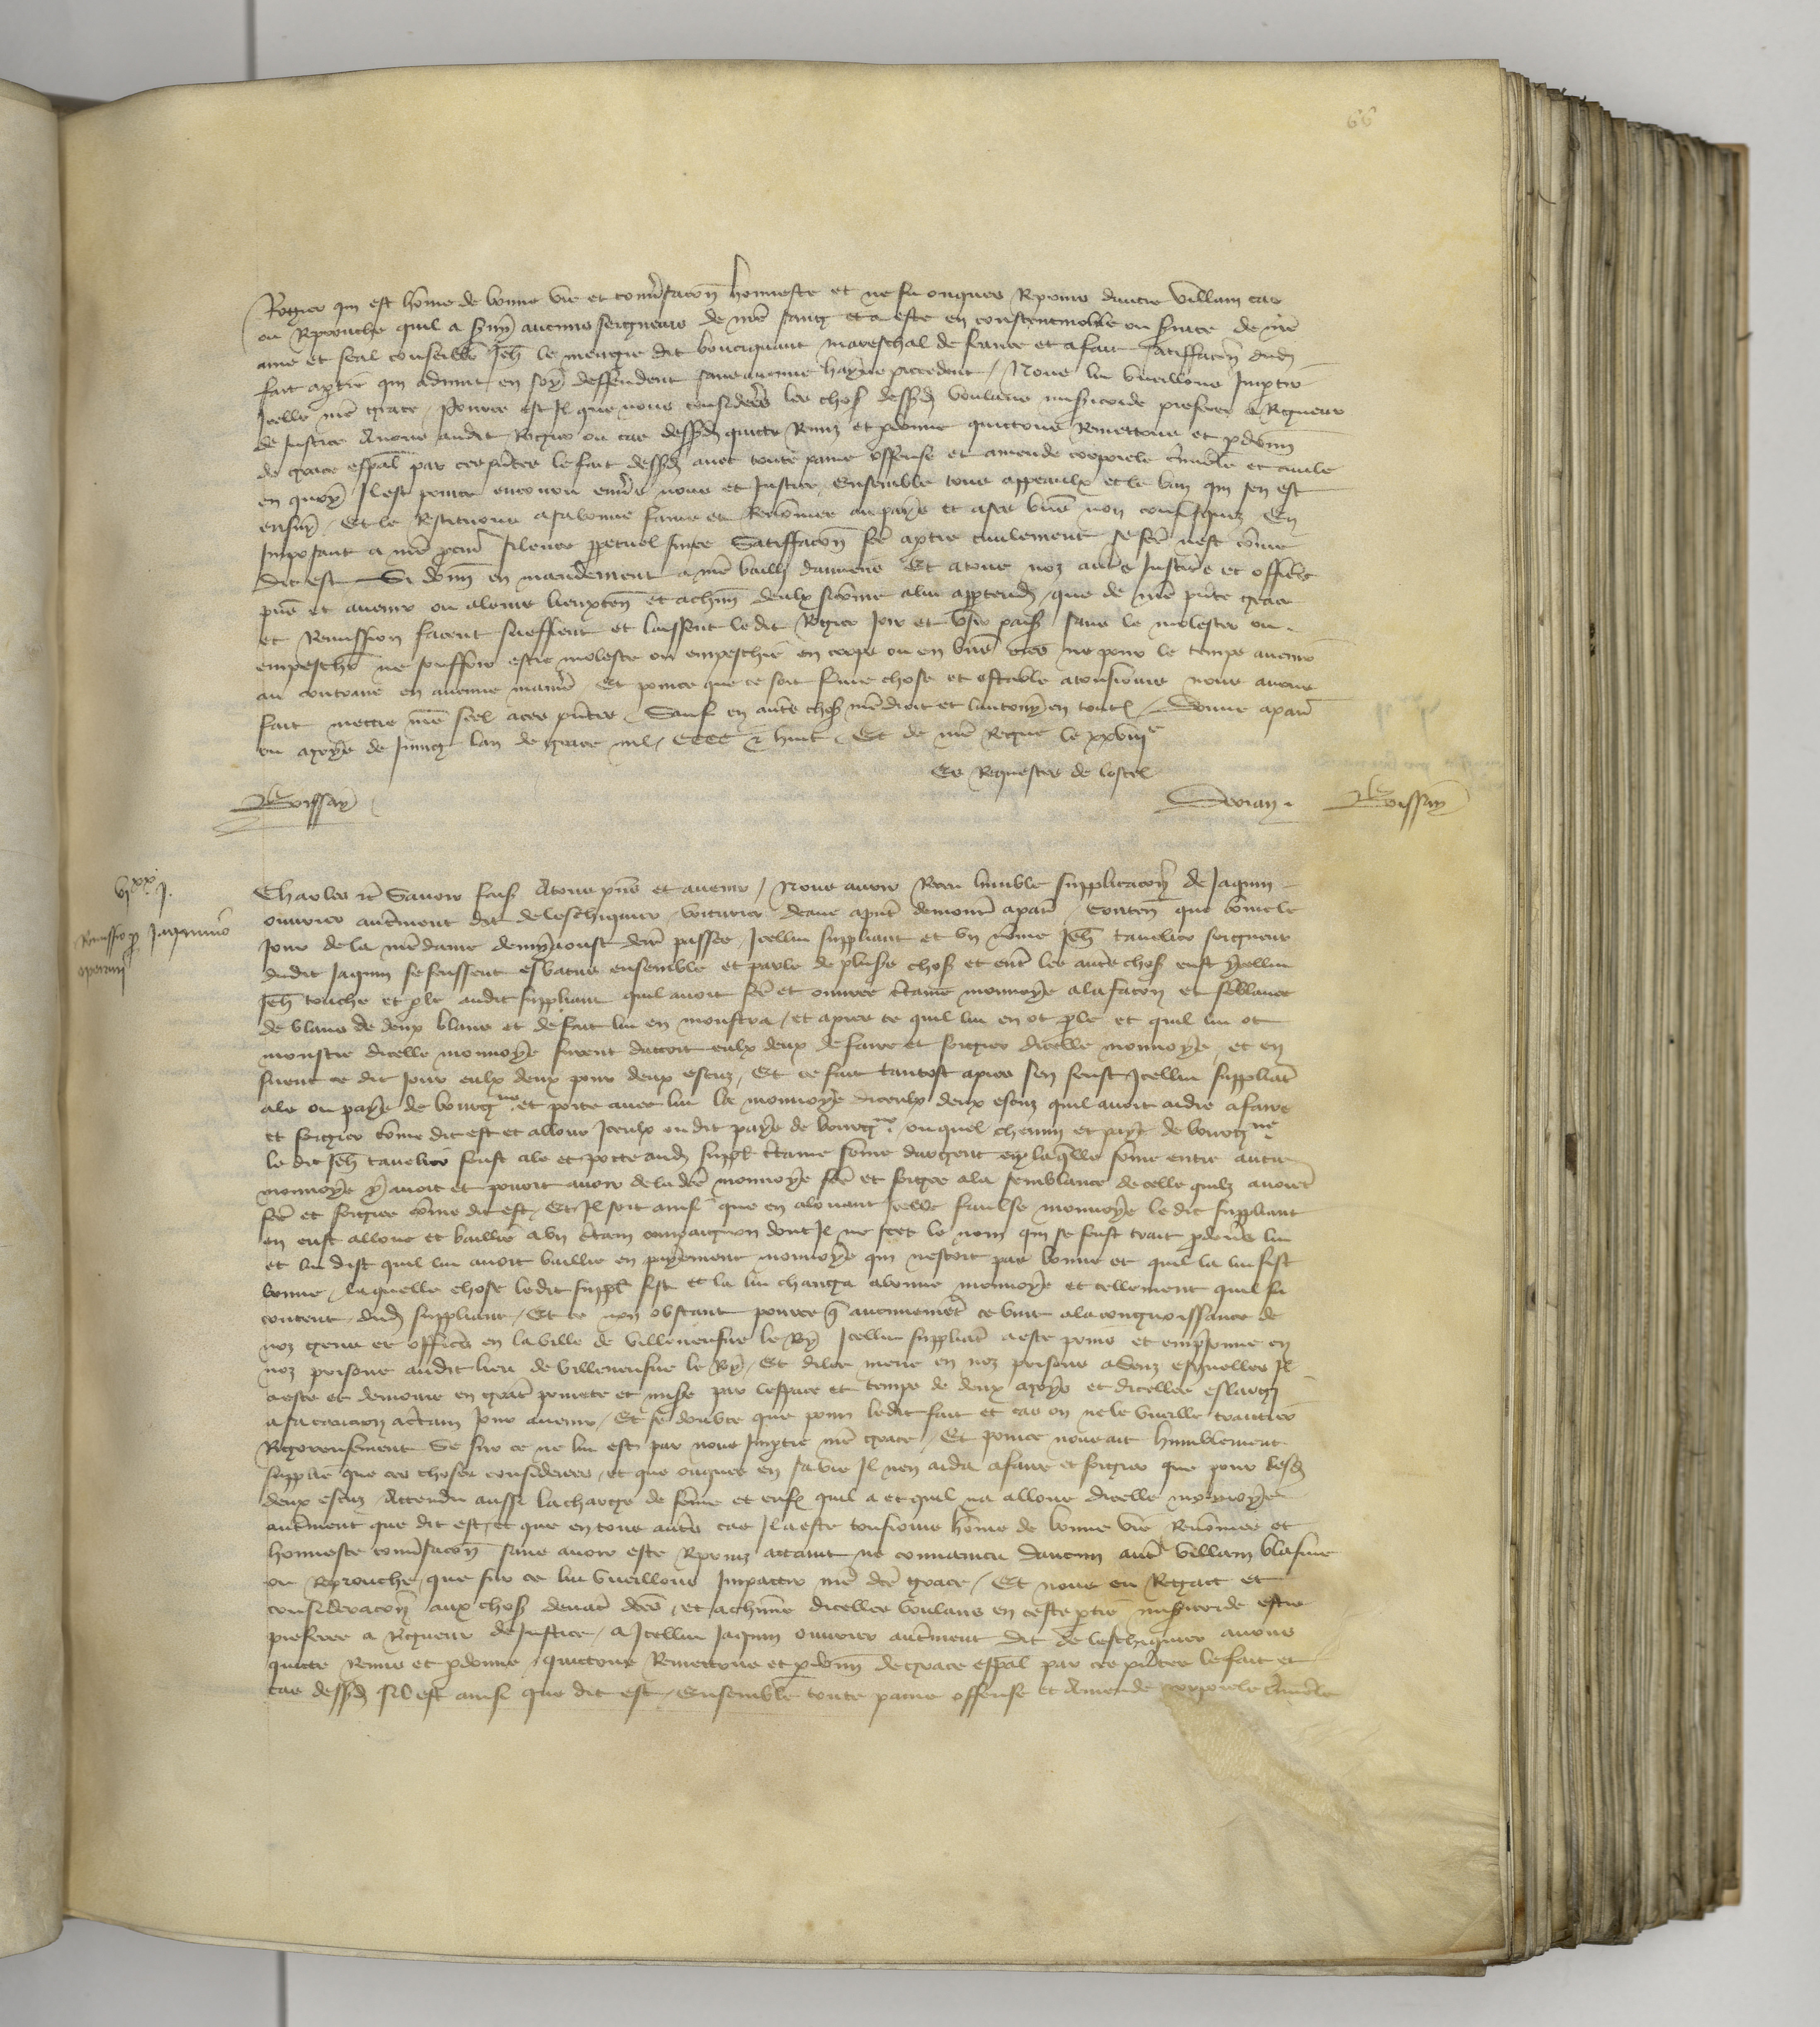 66
Rogier qui est home de bonne vie et conv̄sacōn honneste et ne fu onques Repoins dautre villain cas
ou Reprouche quil a s̄uy aucuns seigneurs de nr̄e sang et a este en ou s̄uice de nr̄e
ame et feal conseillr̄ Jeh̄ le meingre dit bouciquaut mareschal de france et a fait satiffacōn dud̄
fait a ptie qui advint en soy deffendent sans aucune hayne precedent / Nous lui vueillons Imptir
Icelle nr̄e grace / Pource est Il que nous considere les chos dessd̄ voulans mis̄icorde preferer a Rigueur
de Justice Avons audit Rogier ou cas dessd̄ quicte Remiz et pdonne quictons Remettons et pdonn̄
de grace esp̄al par ces pn̄tes le fait dessd̄ avec toute paine offense et amende corporele c̄minele et civile
en quoy Il est pource encouru env̄s nous et Justice / Ensemble tous appeaulx et le ban qui sen est
ensuy / Et le Restituons a sa bonne fame et Renōmee au pays et a ses biēs non confisquez En
Imposant a nr̄e pcur̄ silence ppetuel satiffacōn fc̄e a ptie civilement se fc̄e nest cōme
dit est Si donn̄ en mandement a nr̄e bailli damiens Et a tous noz aut̄s Justic̄s et offic̄s
pn̄s et avenir ou a leurs lieuxten̄ et a chun̄ deulx si cōme a lui apptendr̄ que de nr̄e pn̄te grace
et Remission facent sueffrent et laissent ledit Rogier Joir et us̄ paisi sans le molester ou
empeschr̄ ne souffrir estre moleste ou empeschie en corps ou en biēs ores ne pour le temps avenir
au contraire en aucune manie / Et pource que ce soit ferme chose et estable a tousiours nous avons
fait mettre nr̄e seel a ces pn̄tes / Sauf en aut̄s chos nr̄e droit et lautruy en toutes / Donne a par̄
ou moys de Juing lan de grace mil / CCCC z huit Et de nr̄e Regne le xxviije
Es Requestes de lostel
Boissay Derian Boissay
vjxx j.
Remissio p Jaquino
operarii
Charles etc̄ Savoir fais A tous pn̄s et avenir / Nous avoir Receu lumble supplicacōn de Jaquin
ouvrier autr̄ment dit de leschiquier voiturier deaue a pn̄t demour̄ a par̄ / Conten̄ que cōme le
Jour de la nr̄e dame demyaoust derr̄ passee / Icellui suppliant et un nōme Jeh̄ tavelier seigneur
dudit Jaquin se feussent esbatus ensemble et parle de plus̄s chos et ent̄ les aut̄s chos eust ycellui
Jeh̄ touche et ple audit suppliant quil avoit fc̄e et ouvree c̄taine monnoye a la facon et semblance
de blans de deux blans et de fait lui en monstra / et apres ce quil lui en ot ple et quil lui ot
monstre dicelle monnoye furent daccort eulx deux de faire et forgier dicelle monnoye / et en
firent ce dit Jour eulx deux pour deux escuz / Et ce fait tantost apres sen feust Icellui suppliāt
ale ou pays de bourḡne et porte avec lui la monnoye diceulx deux escuz quil avoit aidie a faire
et forgier cōme dit est et alloue Iceulx ou dit pays de bourḡne / ouquel chemin et pays de bourḡne
le dit Jeh̄ tavelier feust ale et porte aud̄ suppl̄ c̄taine sōme dargent en laq̄lle sōme entre autre
monnoye y avoit et povoit avoir de la dc̄e monnoye fc̄e et forgee a la semblance de celle quilz avoiēt
fc̄e et forgiee cōme dit est / Et Il soit ainsi que en alouant Icelle faulse monnoye le dit suppliant
en eust alloue et baillie a un c̄tain compaignon dont Il ne scet le nom qui se feust trait pdev̄s lui
et lui dist quil lui avoit baillie en payement monnoye qui nestoit pas bonne et quil la lui fist
bonne / laquelle chose ledit suppl̄ fist et la lui changa a bonne monnoye et tellement quil fu
content dud̄ suppliant / Et ce non obstant pource q̄ aucunemēt ce vint a la congnoissance de
noz gens et offic̄s en la ville de villeneufue le Roy Icellui suppliāt a este prins et emp̄sonne en
noz prisons audit lieu de villeneufue le Roy / Et dilec mene en noz prisons a Senz esquelles Il
a este et demoure en grāt povrete et mise par lespace et temps de deux moys et dicelles eslargi
a sa caucion a c̄tain Jour avenir / Et se doubte que pour ledit fait et cas on ne le vueille traictier
Rigoreusement Se sur ce ne lui est par nous Imptie nr̄e grace / Et pource nous ait humblement
supplie que ces choses considerees / et que onques en sa vie Il nen aida a faire et forgier que pour lesd̄
deux escuz / Attendu aussi la charge de fēme et enfs̄ quil a et quil na alloue dicelle monnoye
autr̄ment que dit est / et que en tous aut̄s cas Il a este tousiours hōme de bonne vie Renōmee et
honneste conv̄sacōn sans avoir este Reprins attaint ne convaincu daucun aut̄ villain blasme
ou Reprouche / que sur ce lui vueillons Impartir nr̄e dc̄e grace / Et nous eu Regart et
consideracōn aux chos devāt dc̄es / et a chune dicelles voulans en ceste ptie mis̄icorde estre
preferee a Rigueur de Justice / A Icellui Jaquin ouvrier autr̄ment dit de leschiquier avons
quicte Remis et pdonne / quictons Remettons et pdonn̄ de grace esp̄al par ces pn̄tes le fait et
cas dessd̄ sil est ainsi que dit est / Ensemble toute paine offense et Amende corporele c̄minele